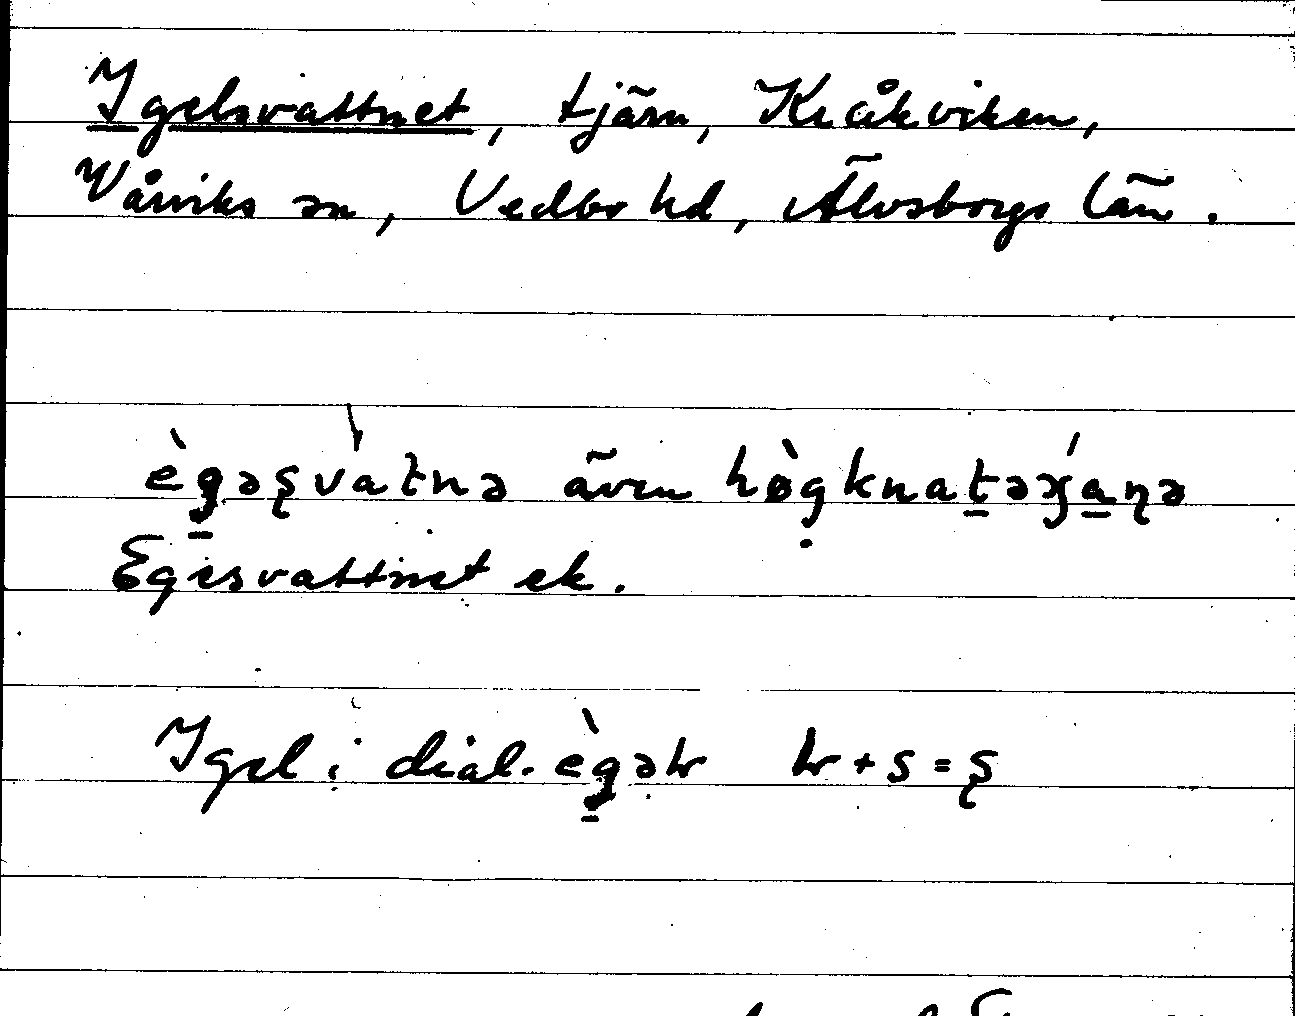 Igelsvattnet, tjärn, Kråkviken,
Vårviks sn, Vedbo hd, Älvsborgs län.
ègəʂvatnə även høgknatə
Egesvattnet ek.
Igel i dial. ègəɽ ɽ + s = ʂ